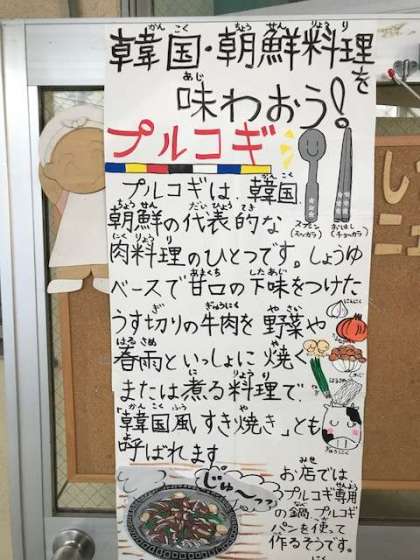 韓国・朝鮮料理を
味わおう!
プルコギ
プルコギは、韓国
朝鮮の代表的な
肉料理のひとつです。しょうゆ
ベースで甘口の下味をつけた
うす切りの牛肉を野菜や
春雨といっしょに焼く
または煮る料理で、
「韓国風すき焼き」とも
呼ばれます
スプーン
(スッカラ)
おはし
(チョッカラ)
にんにく
ぎゅうにく
じゅ〜っっ
お店では
プルコギ専用
の鍋、プルコギ
パンを使って
作るそうです。